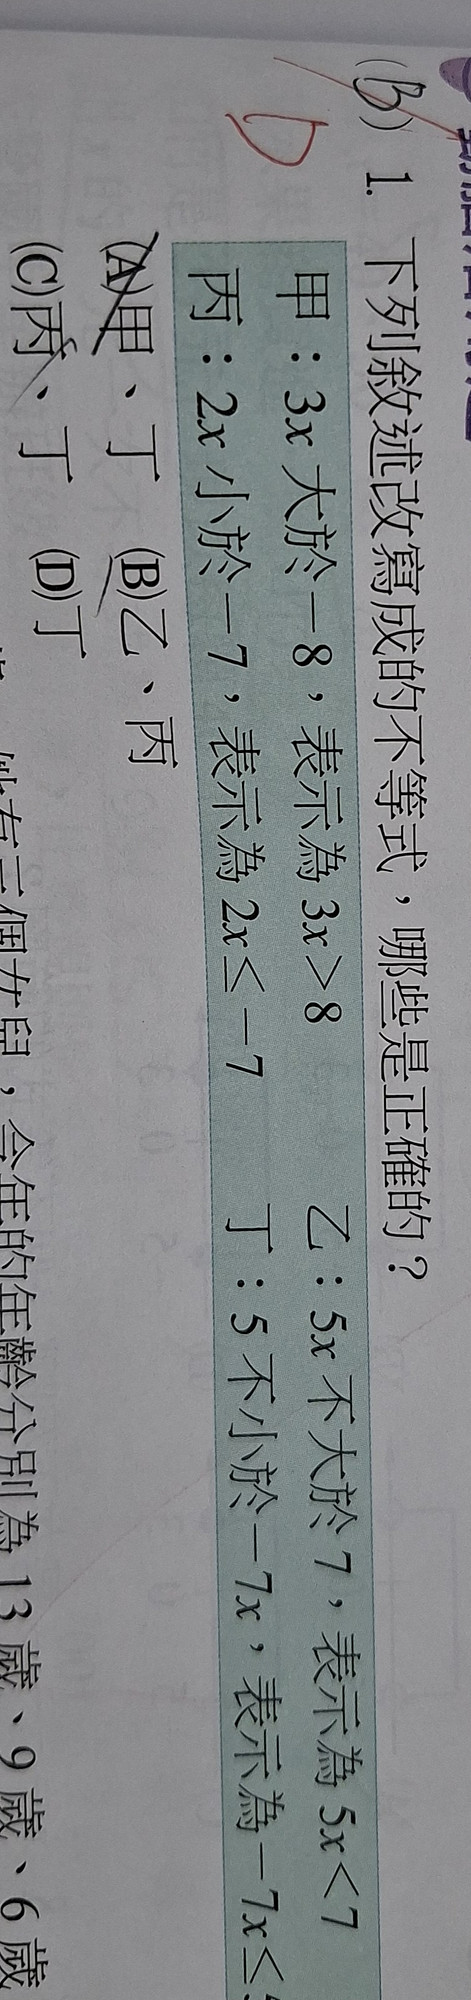 (B) 1. 下列敘述改寫成的不等式，哪些是正確的？
D
甲：3x 大於－8，表示為 3x＞8 乙：5x 不大於 7，表示為 5x＜7
丙：2x 小於－7，表示為 2x≤－7 丁：5 不小於－7x，表示為－7x≤5
(A)甲、丁 (B)乙、丙
(C)丙、丁 (D)丁
她有三個女兒，今年的年齡分別為 13 歲、9 歲、6 歲